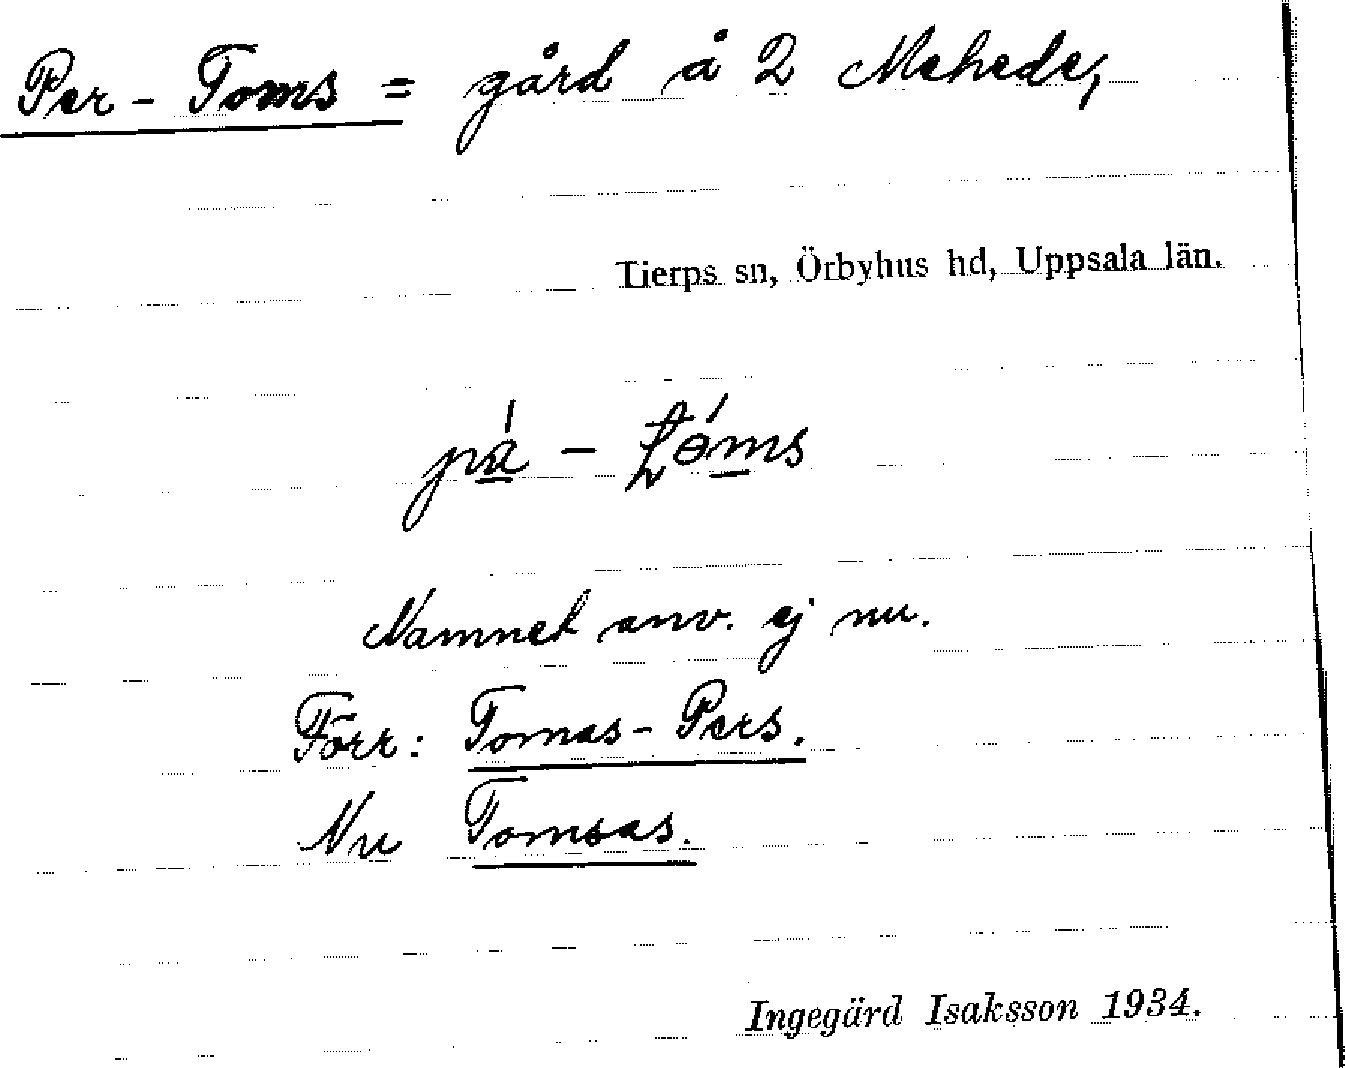 Per-Toms = gård å 2 Mehede,
Tierps sn, Örbyhus hd, Uppsala län.
Namnet anv. ej nu.
Förr: Tomas-Pers.
Nu Tomsas.
Ingegärd Isaksson 1934.